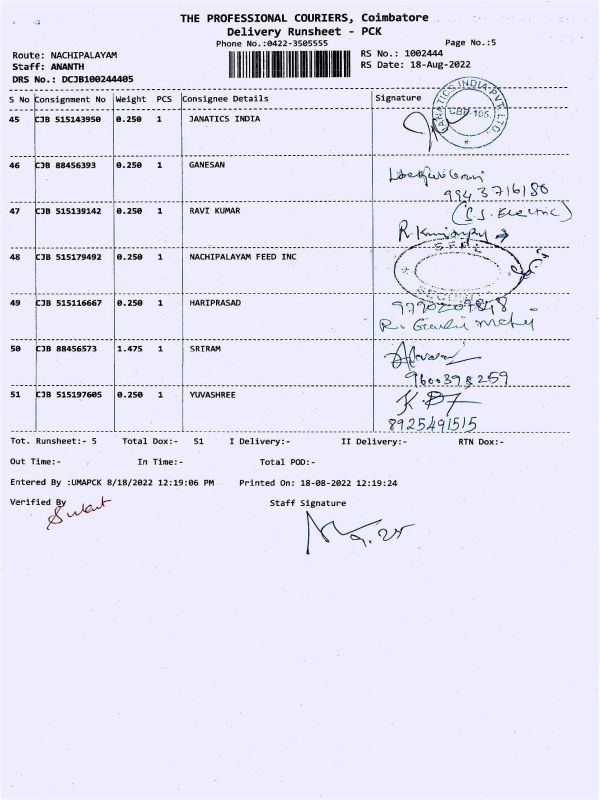 THE PROFESSIONAL COURIERS, Coimbatore
Delivery Runsheet - PCK
Phone No.:0422-3505555 Page No.:5
Route: NACHIPALAYAM RS No.: 1002444
Staff: ANANTH RS Date: 18-Aug-2022
DRS No.: DCJB100244405
S No Consignment No Weight PCS Consignee Details Signature
45 CJB 515143950 0.250 1 JANATICS INDIA
JANATICS INDIA PVT LTD
46 CJB 88456393 0.250 1 GANESAN
9943716180
47 CJB 515139142 0.250 1 RAVI KUMAR
48 CJB 515179492 0.250 1 NACHIPALAYAM FEED INC
49 CJB 515116667 0.250 1 HARIPRASAD
50 CJB 88456573 1.475 1 SRIRAM
51 CJB 515197605 0.250 1 YUVASHREE
8925491515
Tot. Runsheet:- 5 Total Dox:- 51 I Delivery:- II Delivery:- RTN Dox:-
Out Time:- In Time:- Total POD:-
Entered By :UMAPCK 8/18/2022 12:19:06 PM Printed On: 18-08-2022 12:19:24
Verified By Staff Signature